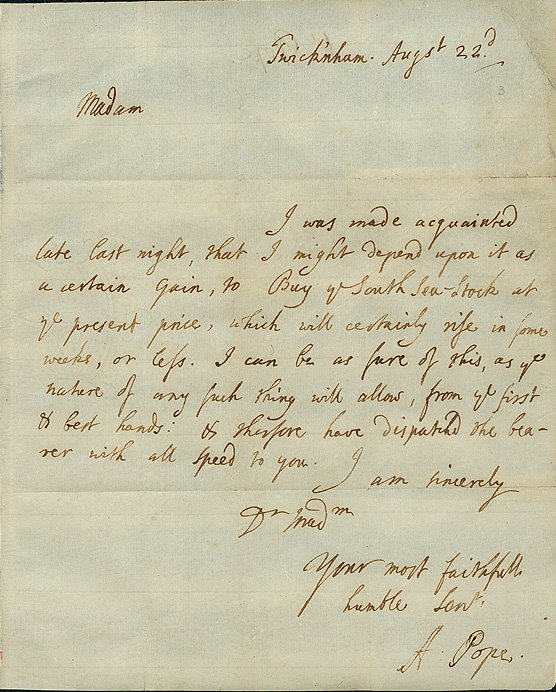 Twick'nham. Augst 22d
3
Madam
I was made acquainted
late last night, that I might depend upon it as
a certain Gain, to Buy ye South Sea-Stock at
ye present price, which will certainly rise in some
weeks, or less. I can be as sure of this, as ye
nature of any such thing will allow, from ye first
& best hands: & therefore have dispatchd the bea-
rer with all speed to you. I am sincerely
Dr Madm
Your most faithfull
humble Servt.
A. Pope.